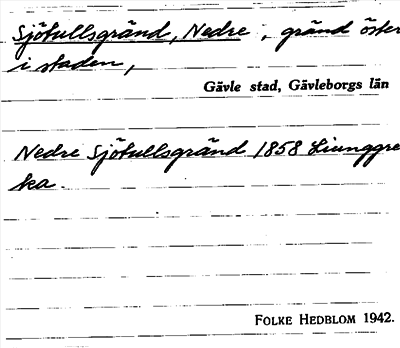 Sjötullsgränd, Nedre, gränd öster
i staden,
Gävle stad, Gävleborgs län
Nedre Sjötullsgränd 1858 Ljunggre
ka.
FOLKE HEDBLOM 1942.